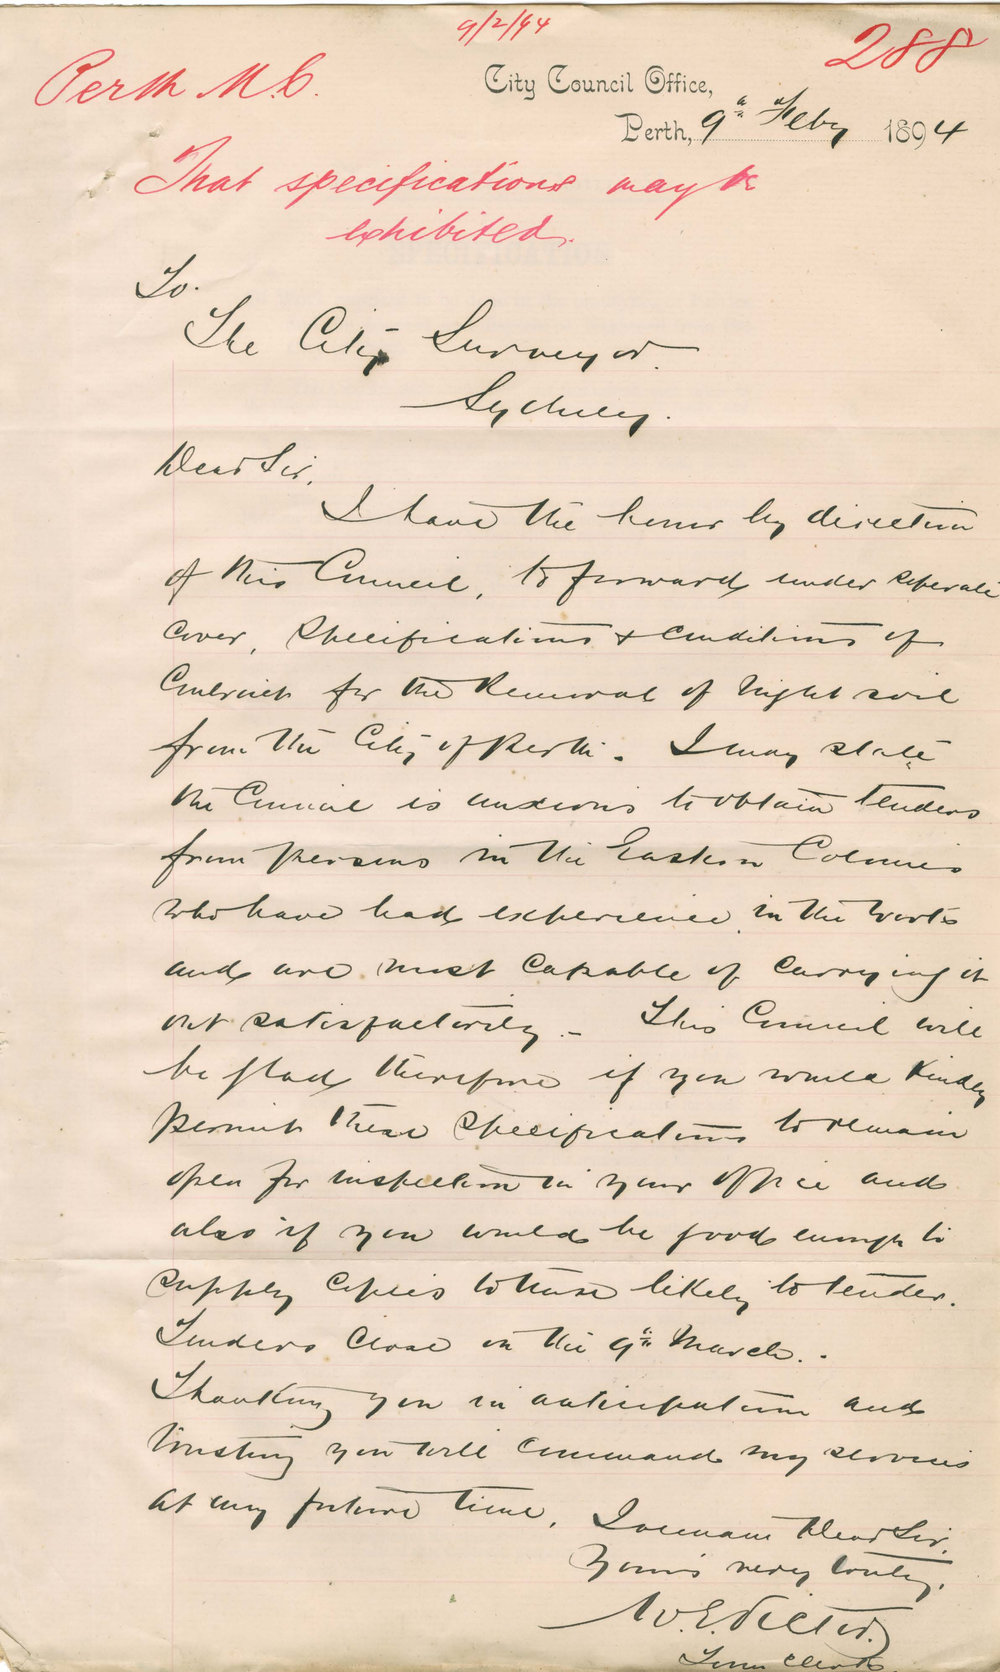 9/2/94
288
Perth M.C.
City Council Office,
Perth, 9th Feby 1894
That specifications may be
exhibited.
To.
The City Surveyor.
Sydney.
Dear Sir,
I have the honor by direction
of this Council, to forward under seperate
cover, specifications & conditions of
Contract for the Removal of Night soil
from the City of Perth. I may state
the Council is anxious to obtain tenders
from persons in the Eastern Colonies
who have had experience in the works
and are most capable of carrying it
out satisfactorily. - This Council will
be glad therefore if you would kindly
permit these specifications to remain
open for inspection in your office and
also if you would be good enough to
supply copies to those likely to tender.
Tenders close on the 9th March. -
Thanking you in anticipation and
trusting you will command my services
at any future time. I remain Dear Sir,
Yours very truly,
W.E. Victor.
Town Clerk